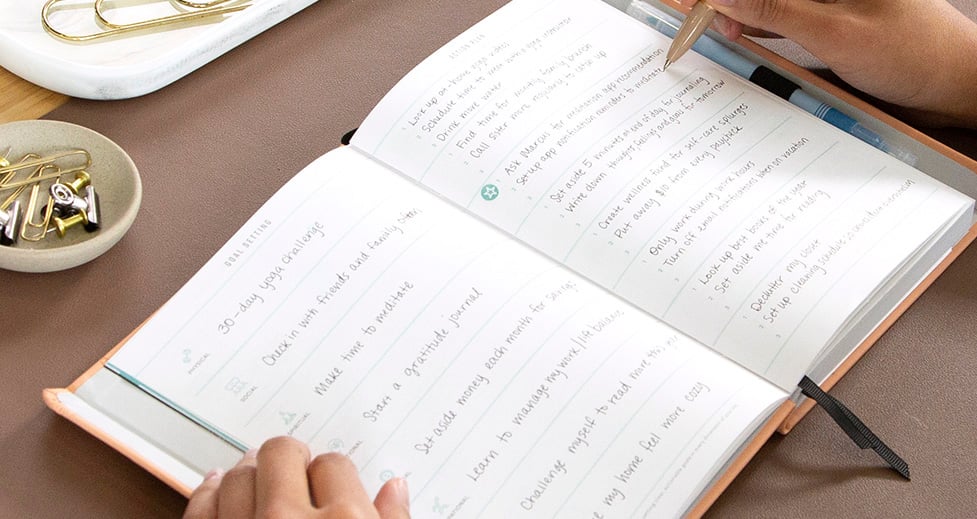 GOAL SETTING
30-day yoga challenge
PHYSICAL
Check in with friends and family often
SOCIAL
Make time to meditate
SPIRITUAL
Start a gratitude journal
Set aside money each month for savings
Learn to manage my work/life balance
Challenge myself to read more this
my home feel more cozy
1 Look up at home yoga
2 Schedule time to
3 Drink more water
1 Find time for monthly family
2 Call sister more regularly to catch up
1 Ask Marcus for meditation app recommendation
2 Set up app notification reminders to meditate
1 Set aside 5 minutes at end of day for journaling
2 Write down thoughts, feelings and goal for tomorrow
1 Create wellness fund for self-care splurges
2 Put away $10 from every paycheck
1 Only work during work hours
2 Turn off email notifications when on vacation
1 Look up best books of the year
2 Set aside me time for reading
1 Declutter my closet
2 Set up cleaning schedule